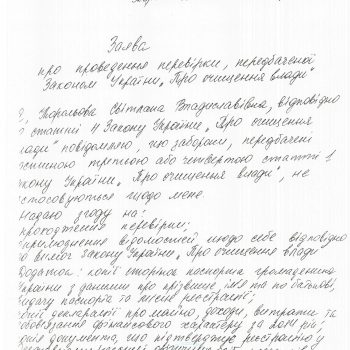 Заява
про проведення перевірки, передбаченої
Законом України „Про очищення влади"
Я, Корольова Світлана Владиславівна, відповідно
статті 4 Закону України „Про очищення
влади" повідомляю, що заборони, визначені
частиною третьою або четвертою статті 1
кону України „Про очищення влади", не
стосовуються щодо мене.
Надаю згоду на:
проходження перевірки;
прилюднення відомостей щодо себе відповідно
до вимог Закону України „Про очищення влади"
Додаток: копії сторінок паспорта громадянина
України з даними про прізвище, ім'я та по батькові,
видачу паспорта та місце реєстрації;
копія декларації про майно, доходи, витрати та
зобов'язання фінансового характеру за 2014 рік;
копія документа, що підтверджує реєстрацію у